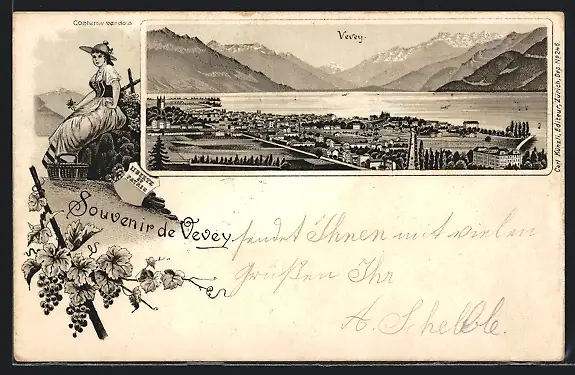 Costume vaudois
Vevey.
LIBERTÉ
ET
PATRIE
Souvenir de Vevey
sendet Ihnen mit vielen
Grüßen Ihr
A. Schelble.
Carl Künzli, Editeur, Zürich, Dep. № 246.